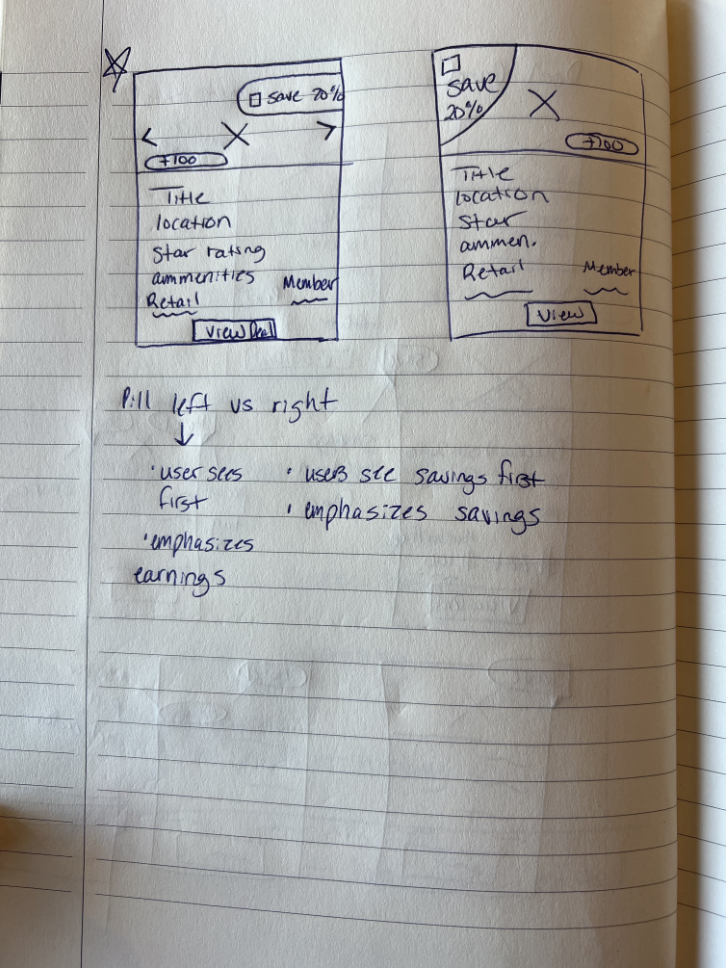 Save 20%
< >
+100
Title
location
Star rating
ammenities
Retail Member
View Deal
Save
20%
+100
Title
location
Star
ammen.
Retail Member
View
Pill left vs right
• user sees
first
• emphasizes
earnings
• users see savings first
• emphasizes savings